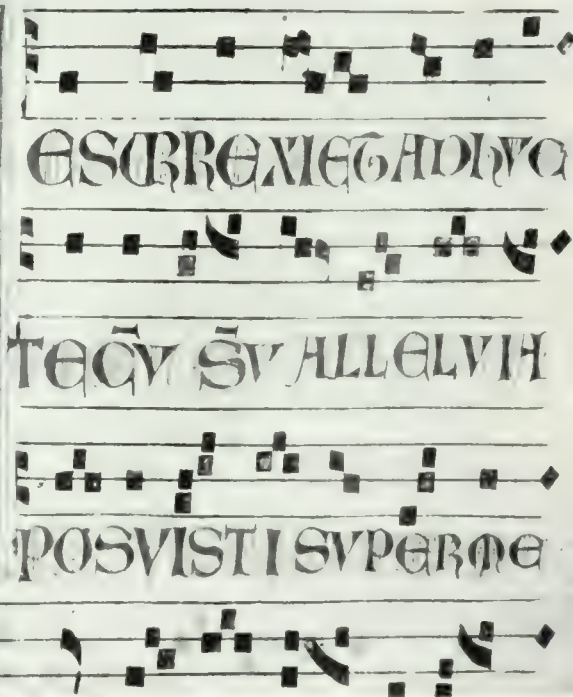 ESURREXI ET ADHVC
TECV̄ SV̄ ALLELVIA
POSVISTI SVPER ME